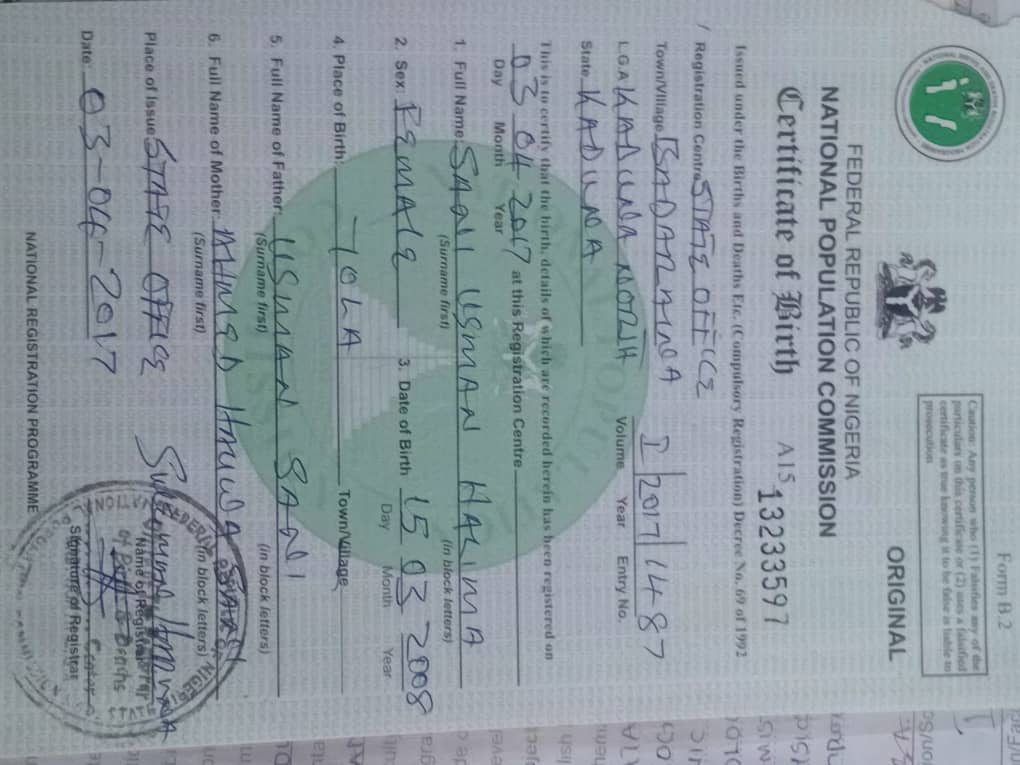 Form B.2
Caution: Any person who (1) Falsifies any of the
particulars on this certificate or (2) uses a falsified
certificate as true knowing it to be false is liable to
prosecution
ORIGINAL
FEDERAL REPUBLIC OF NIGERIA
NATIONAL POPULATION COMMISSION
Certificate of Birth A15 13233597
Issued under the Births and Deaths Etc. (Compulsory Registration) Decree No. 69 of 1992
Registration Centre STATE OFFICE
Town/Village I 2017 1487
L.G.A KADUNA NORTH Volume Year Entry No.
State KADUNA
This is to certify that the birth, details of which are recorded herein has been registered on
03 04 2017 at this Registration Centre
Day Month Year
1. Full Name SANI USMAN HALIMA
(Surname first) (in block letters)
2. Sex: FEMALE 3. Date of Birth 15 03 2008
Day Month Year
4. Place of Birth: Town/Village
5. Full Name of Father: USMAN SANI
(Surname first) (in block letters)
6. Full Name of Mother: AHMED
(Surname first) (in block letters)
Place of Issue STATE OFFICE
Name of Registrar
Date 03-04-2017
Signature of Registrar
NATIONAL REGISTRATION PROGRAMME